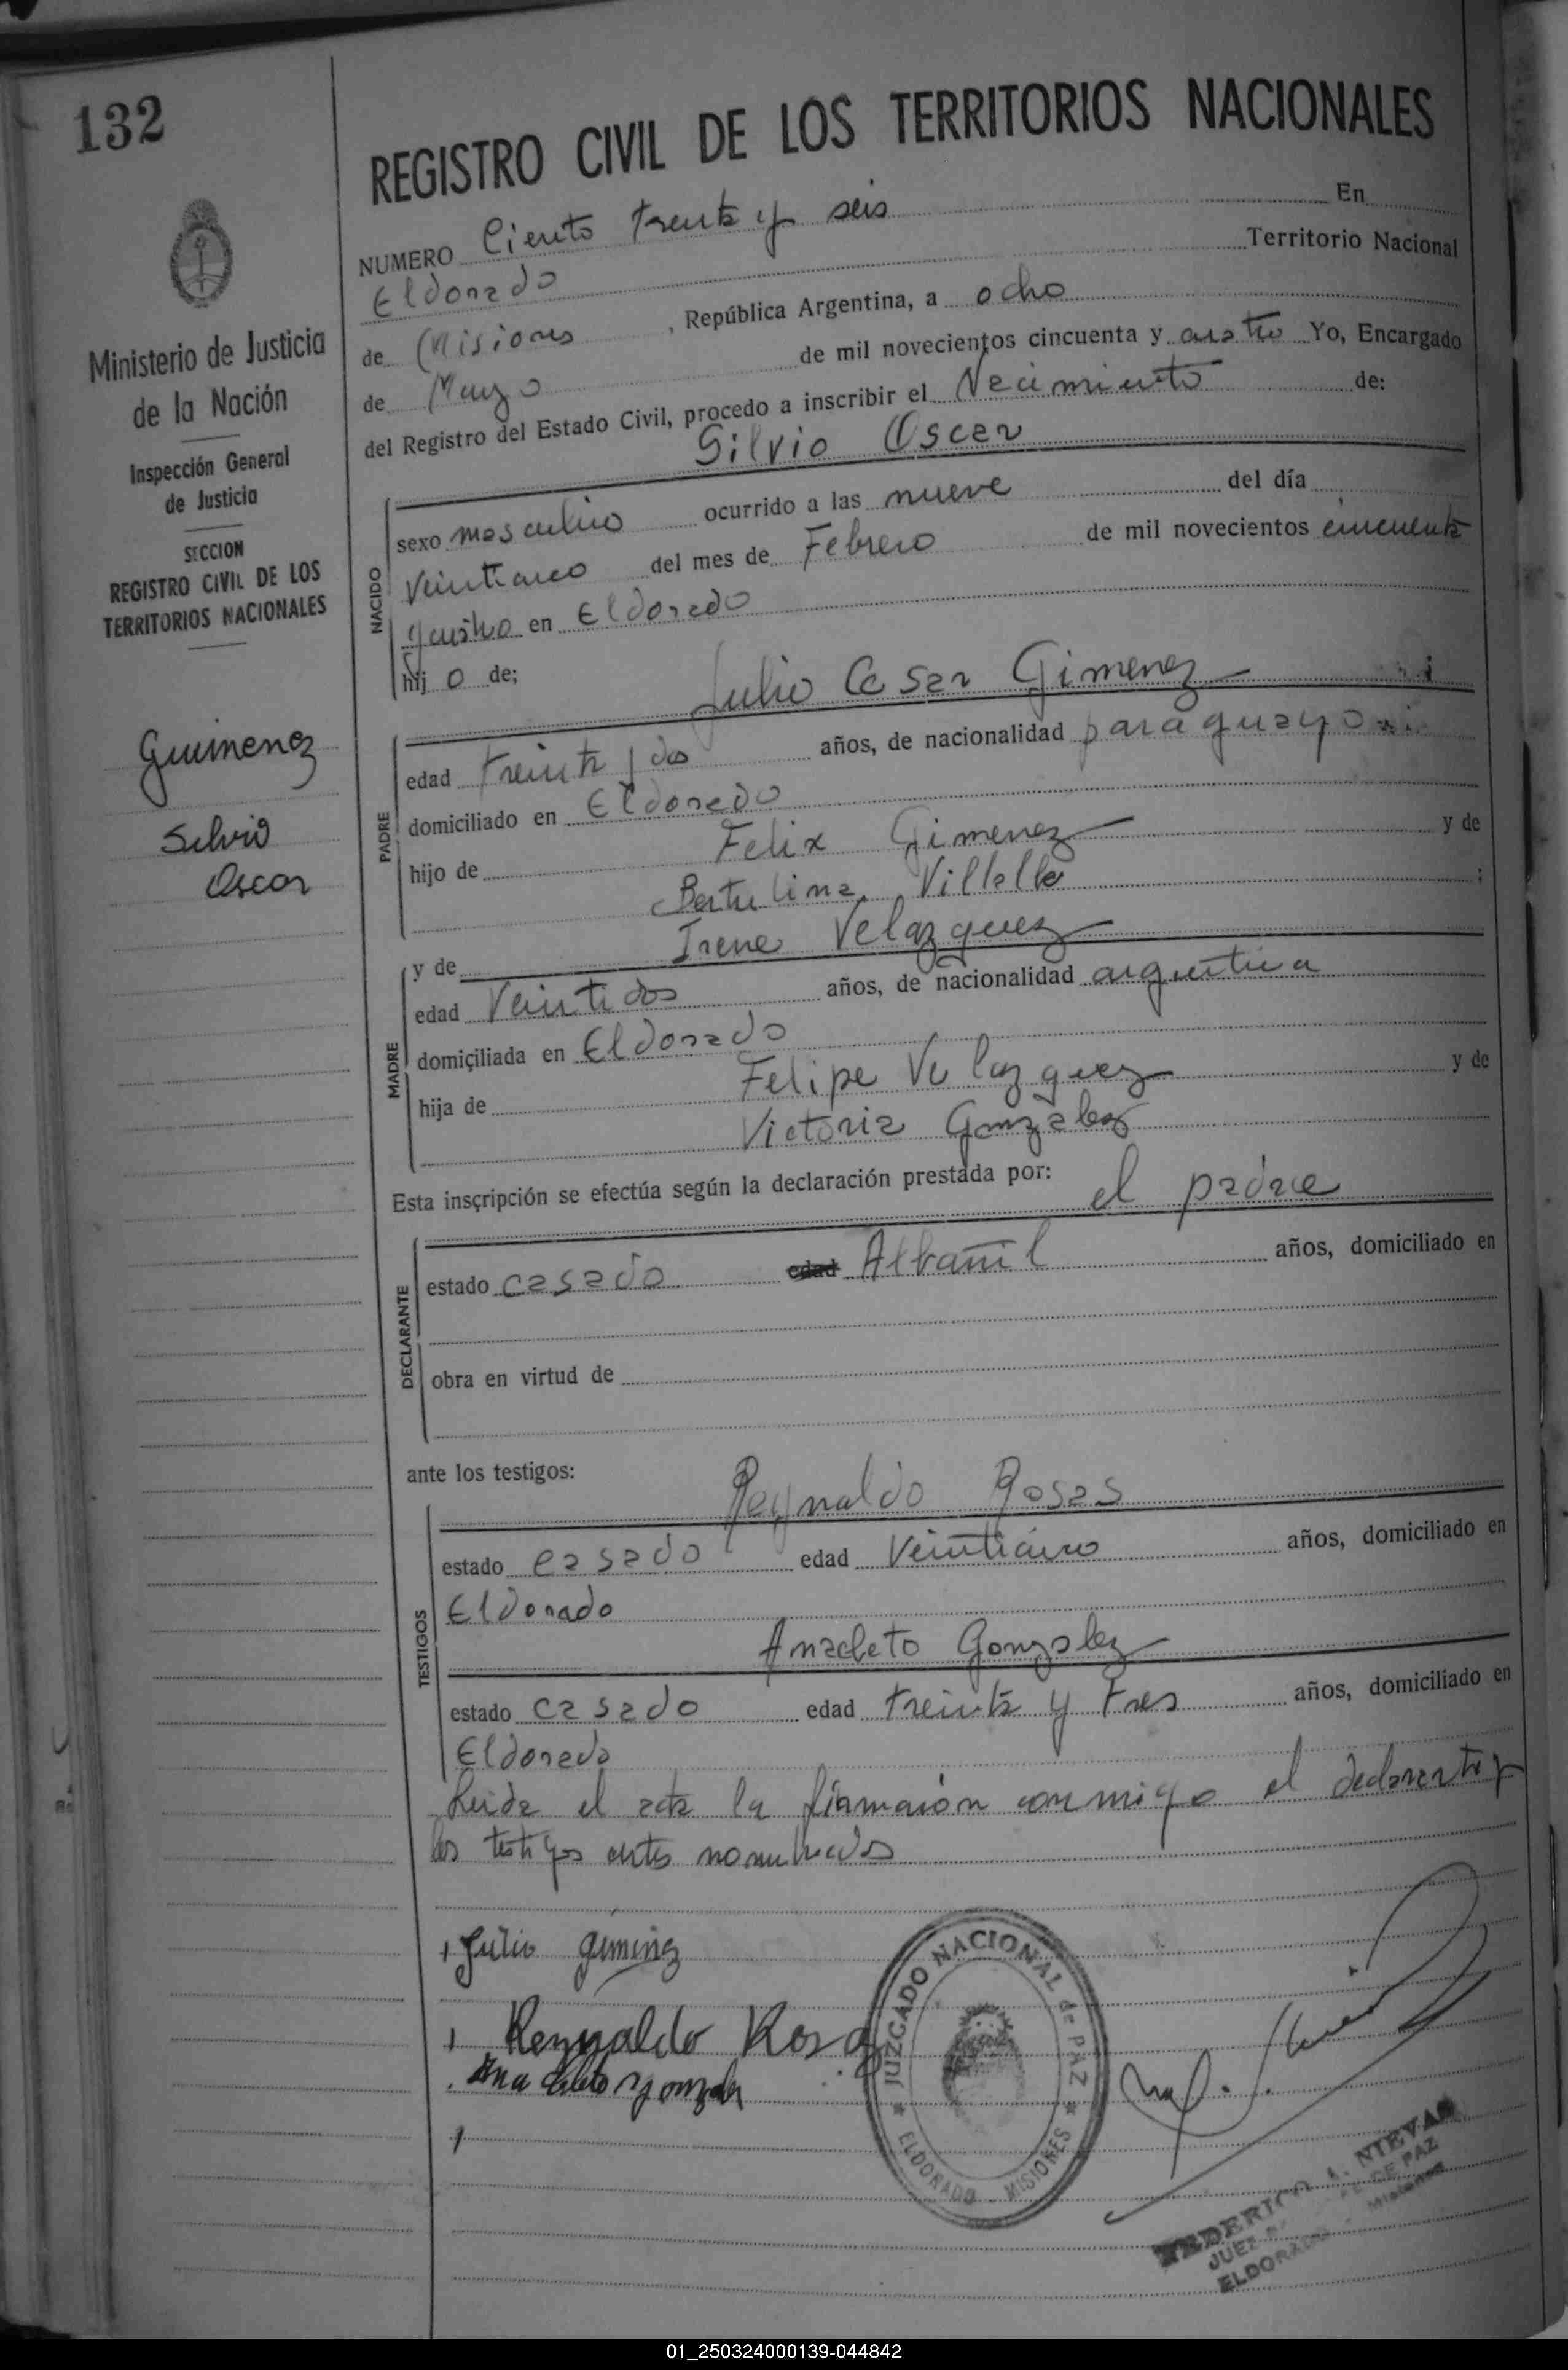 132
REGISTRO CIVIL DE LOS TERRITORIOS NACIONALES
Ministerio de Justicia
de la Nación
Inspección General
de Justicia
SECCION
REGISTRO CIVIL DE LOS
TERRITORIOS NACIONALES
Guimenez
Silvio
Oscar
NUMERO Ciento treinta y seis En
Eldorado Territorio Nacional
de Misiones, República Argentina, a ocho
de Marzo de mil novecientos cincuenta y cuatro Yo, Encargado
del Registro del Estado Civil, procedo a inscribir el Nacimiento de:
Silvio Oscar
NACIDO
sexo masculino ocurrido a las nueve del día
veinticinco del mes de Febrero de mil novecientos cincuenta
y cuatro en Eldorado
hij o de;
Julio Cesar Gimenez
PADRE
edad treinta y dos años, de nacionalidad paraguayo
domiciliado en Eldorado
hijo de Felix Gimenez y de
Bertulina Villalba ;
y de Irene Velazquez
MADRE
edad Veintidos años, de nacionalidad argentina
domiciliada en Eldorado
hija de Felipe Velazquez y de
Victoria Gonzalez
Esta inscripción se efectúa según la declaración prestada por: el padre
DECLARANTE
estado casado edad Albañil años, domiciliado en
obra en virtud de
ante los testigos:
Reynaldo Rosas
TESTIGOS
estado casado edad Veinticinco años, domiciliado en
Eldorado
Anacleto Gonzalez
estado casado edad treinta y tres años, domiciliado en
Eldorado
Leida el acta la firmaron conmigo el declarante y
los testigos antes nombrados
Julio Gimenez
Reynaldo Rosa
Anacleto Gonzalez
JUZGADO NACIONAL de PAZ
ELDORADO - MISIONES
FEDERICO A. NIEVAS
JUEZ DE PAZ
ELDORADO - Misiones
01_250324000139-044842